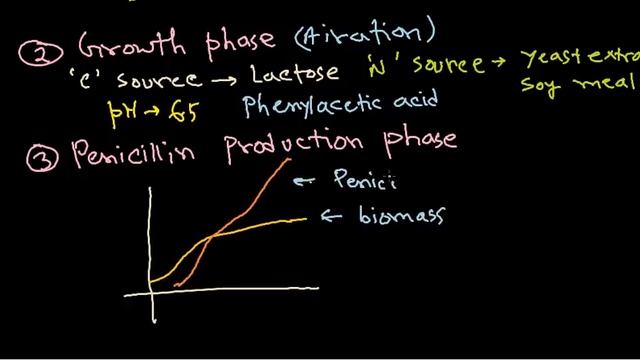 ② Growth phase (Airation)
'C' source → Lactose 'N' source → Yeast extra
pH → 6.5 Phenylacetic acid soy meal
③ Penicillin production phase
← Penici
← biomass